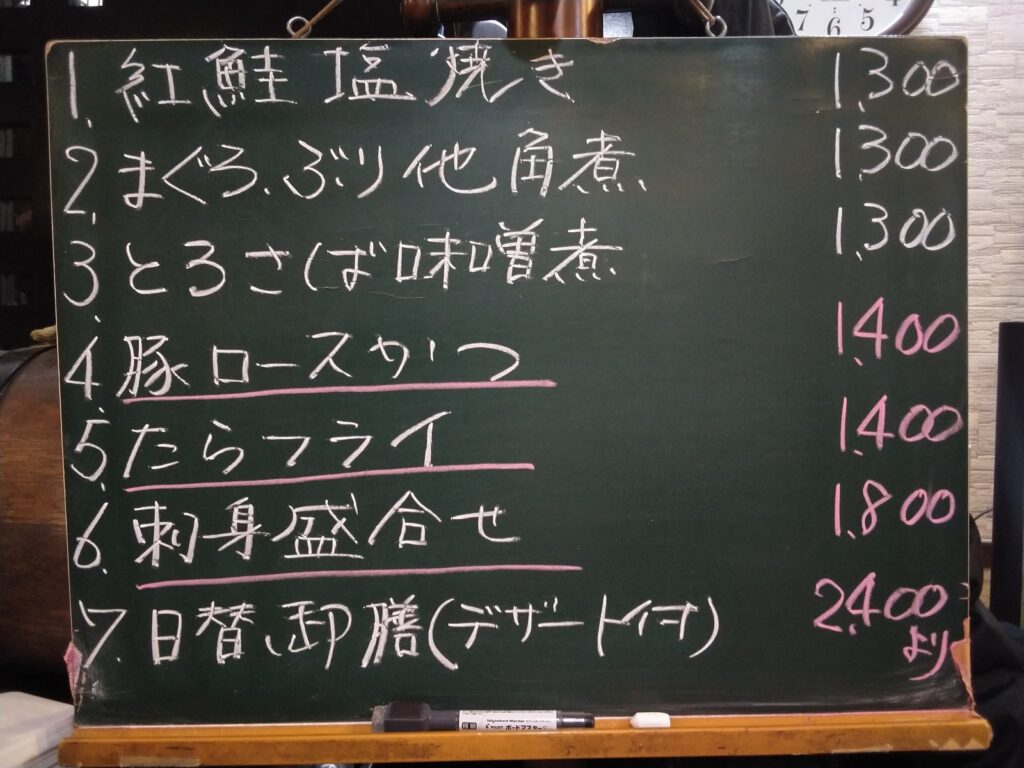 1. 紅鮭塩焼き 1,300
2. まぐろ、ぶり他角煮 1,300
3. とろさば味噌煮 1,300
4. 豚ロースかつ 1,400
5. たらフライ 1,400
6. 刺身盛合せ 1,800
7. 日替御膳(デザート付) 2,400
より
ボードマスター
7 6 5